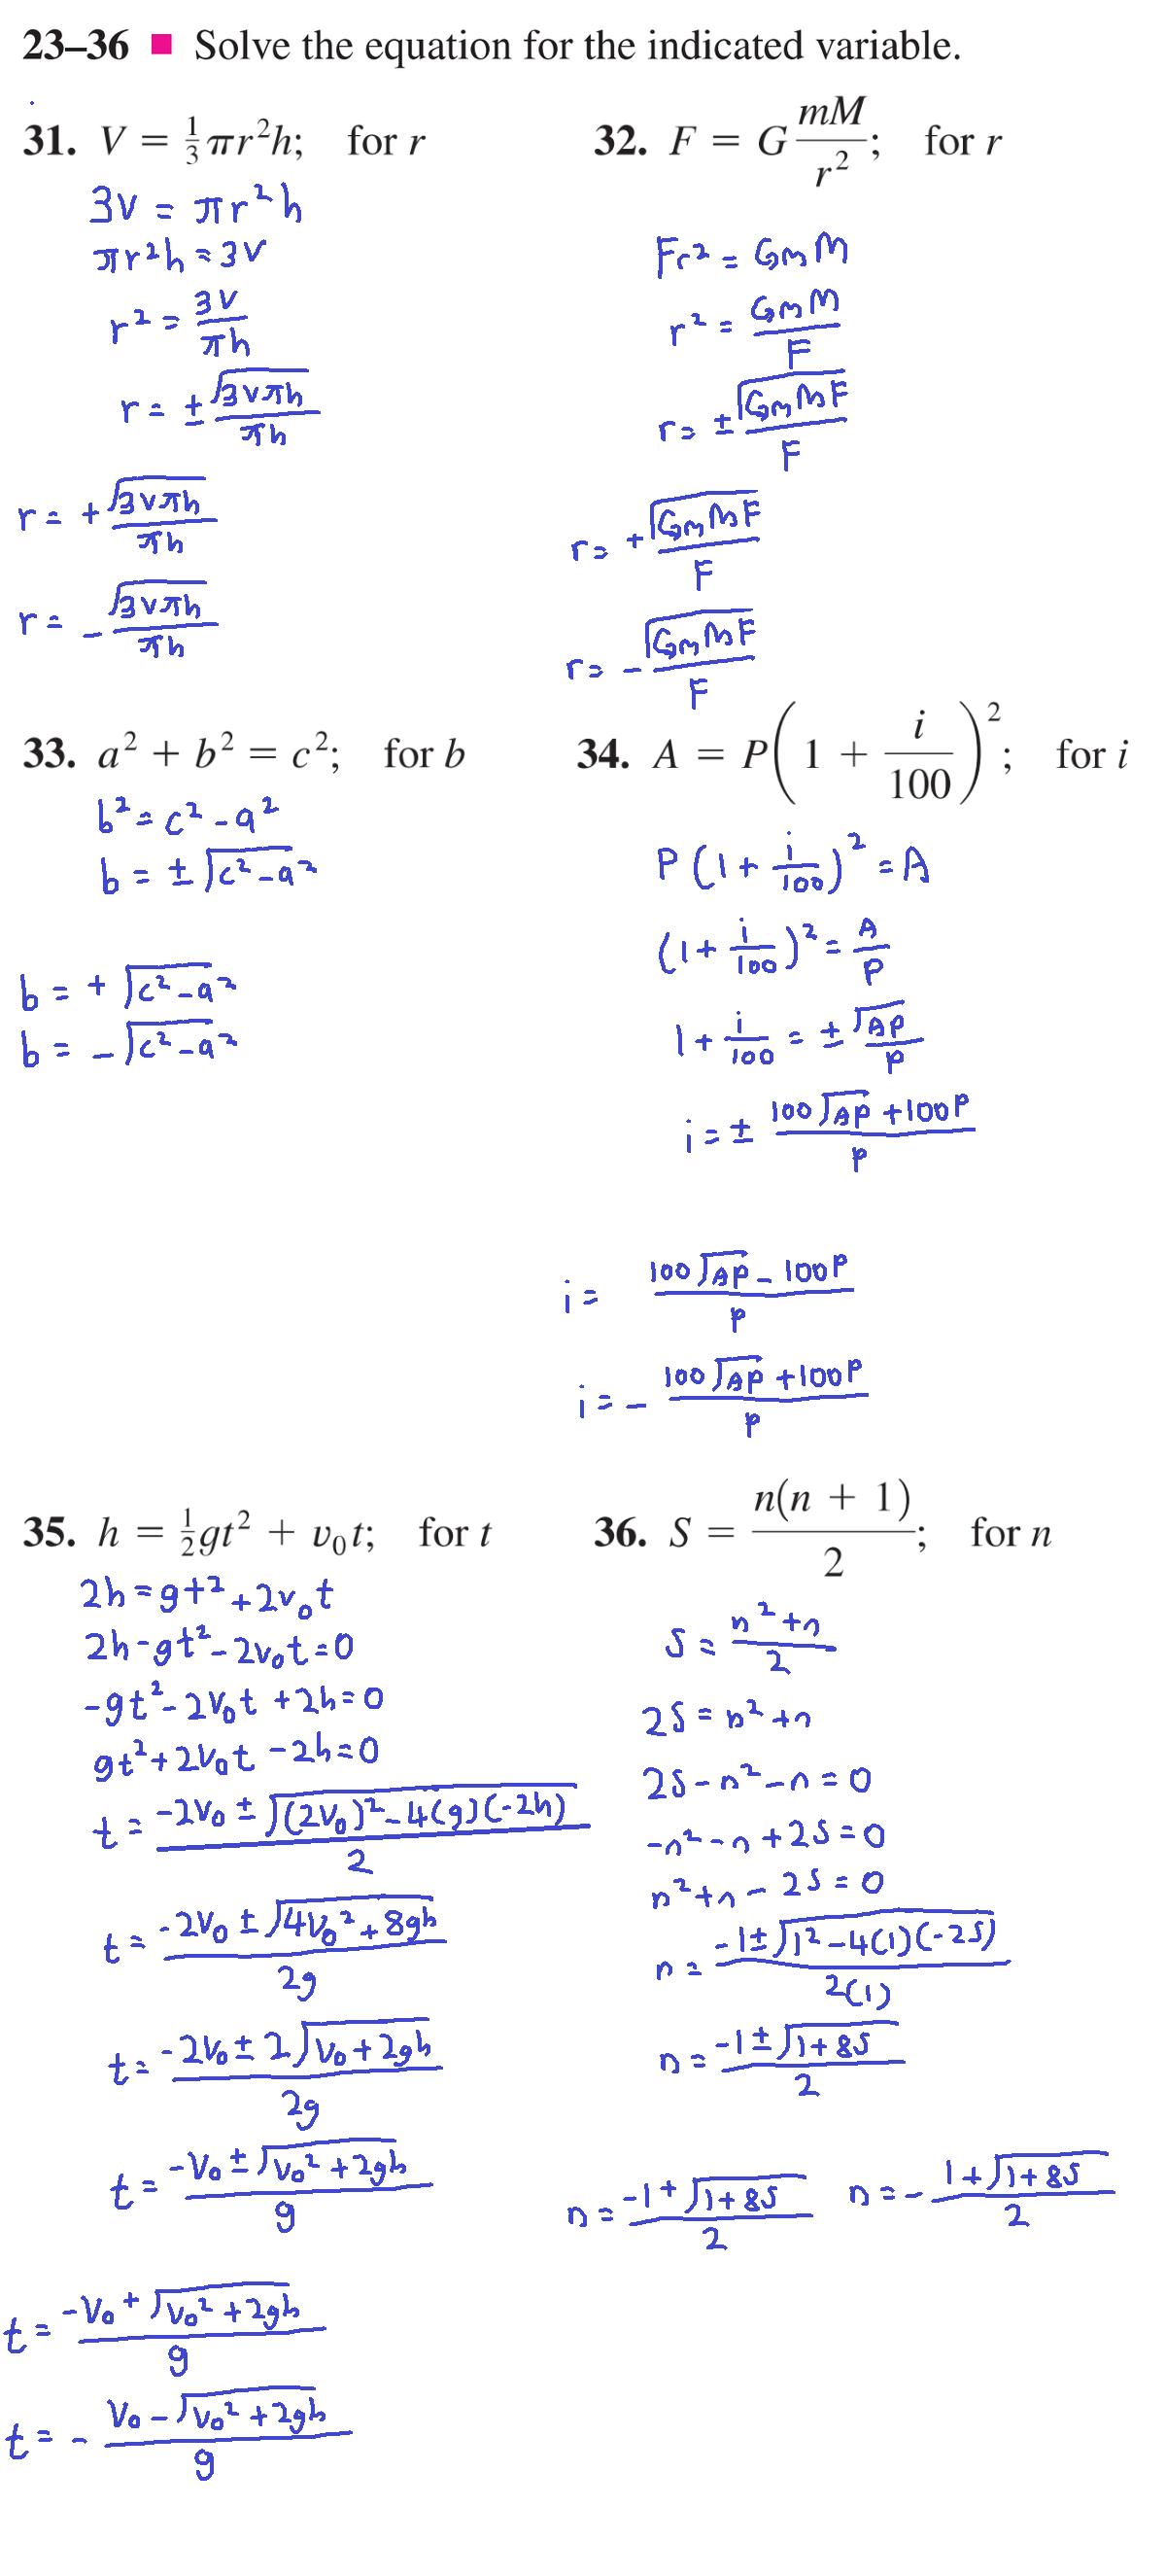 23–36 ■ Solve the equation for the indicated variable.
31. V = 1/3 πr²h; for r
3V = πr²h
πr²h = 3V
r² = 3V/πh
r = ± √3Vπh/πh
r = + √3Vπh/πh
r = - √3Vπh/πh
32. F = G mM/r²; for r
Fr² = GmM
r² = GmM/F
r = ± √GmMF/F
r = + √GmMF/F
r = - √GmMF/F
33. a² + b² = c²; for b
b² = c² - a²
b = ± √c² - a²
b = + √c² - a²
b = - √c² - a²
34. A = P(1 + i/100)²; for i
P(1 + i/100)² = A
(1 + i/100)² = A/P
1 + i/100 = ± √AP/P
i = ± 100√AP + 100P/P
i = 100√AP - 100P/P
i = - 100√AP + 100P/P
35. h = 1/2 gt² + v₀t; for t
2h = gt² + 2v₀t
2h - gt² - 2v₀t = 0
-gt² - 2v₀t + 2h = 0
gt² + 2v₀t - 2h = 0
t = -2v₀ ± √(2v₀)² - 4(g)(-2h)/2
t = -2v₀ ± √4v₀² + 8gh/2g
t = -2v₀ ± 2√v₀ + 2gh/2g
t = -v₀ ± √v₀² + 2gh/g
t = -v₀ + √v₀² + 2gh/g
t = - v₀ - √v₀² + 2gh/g
36. S = n(n + 1)/2; for n
S = n² + n/2
2S = n² + n
2S - n² - n = 0
-n² - n + 2S = 0
n² + n - 2S = 0
n = -1 ± √1² - 4(1)(-2S)/2(1)
n = -1 ± √1 + 8S/2
n = -1 + √1 + 8S/2 n = - 1 + √1 + 8S/2